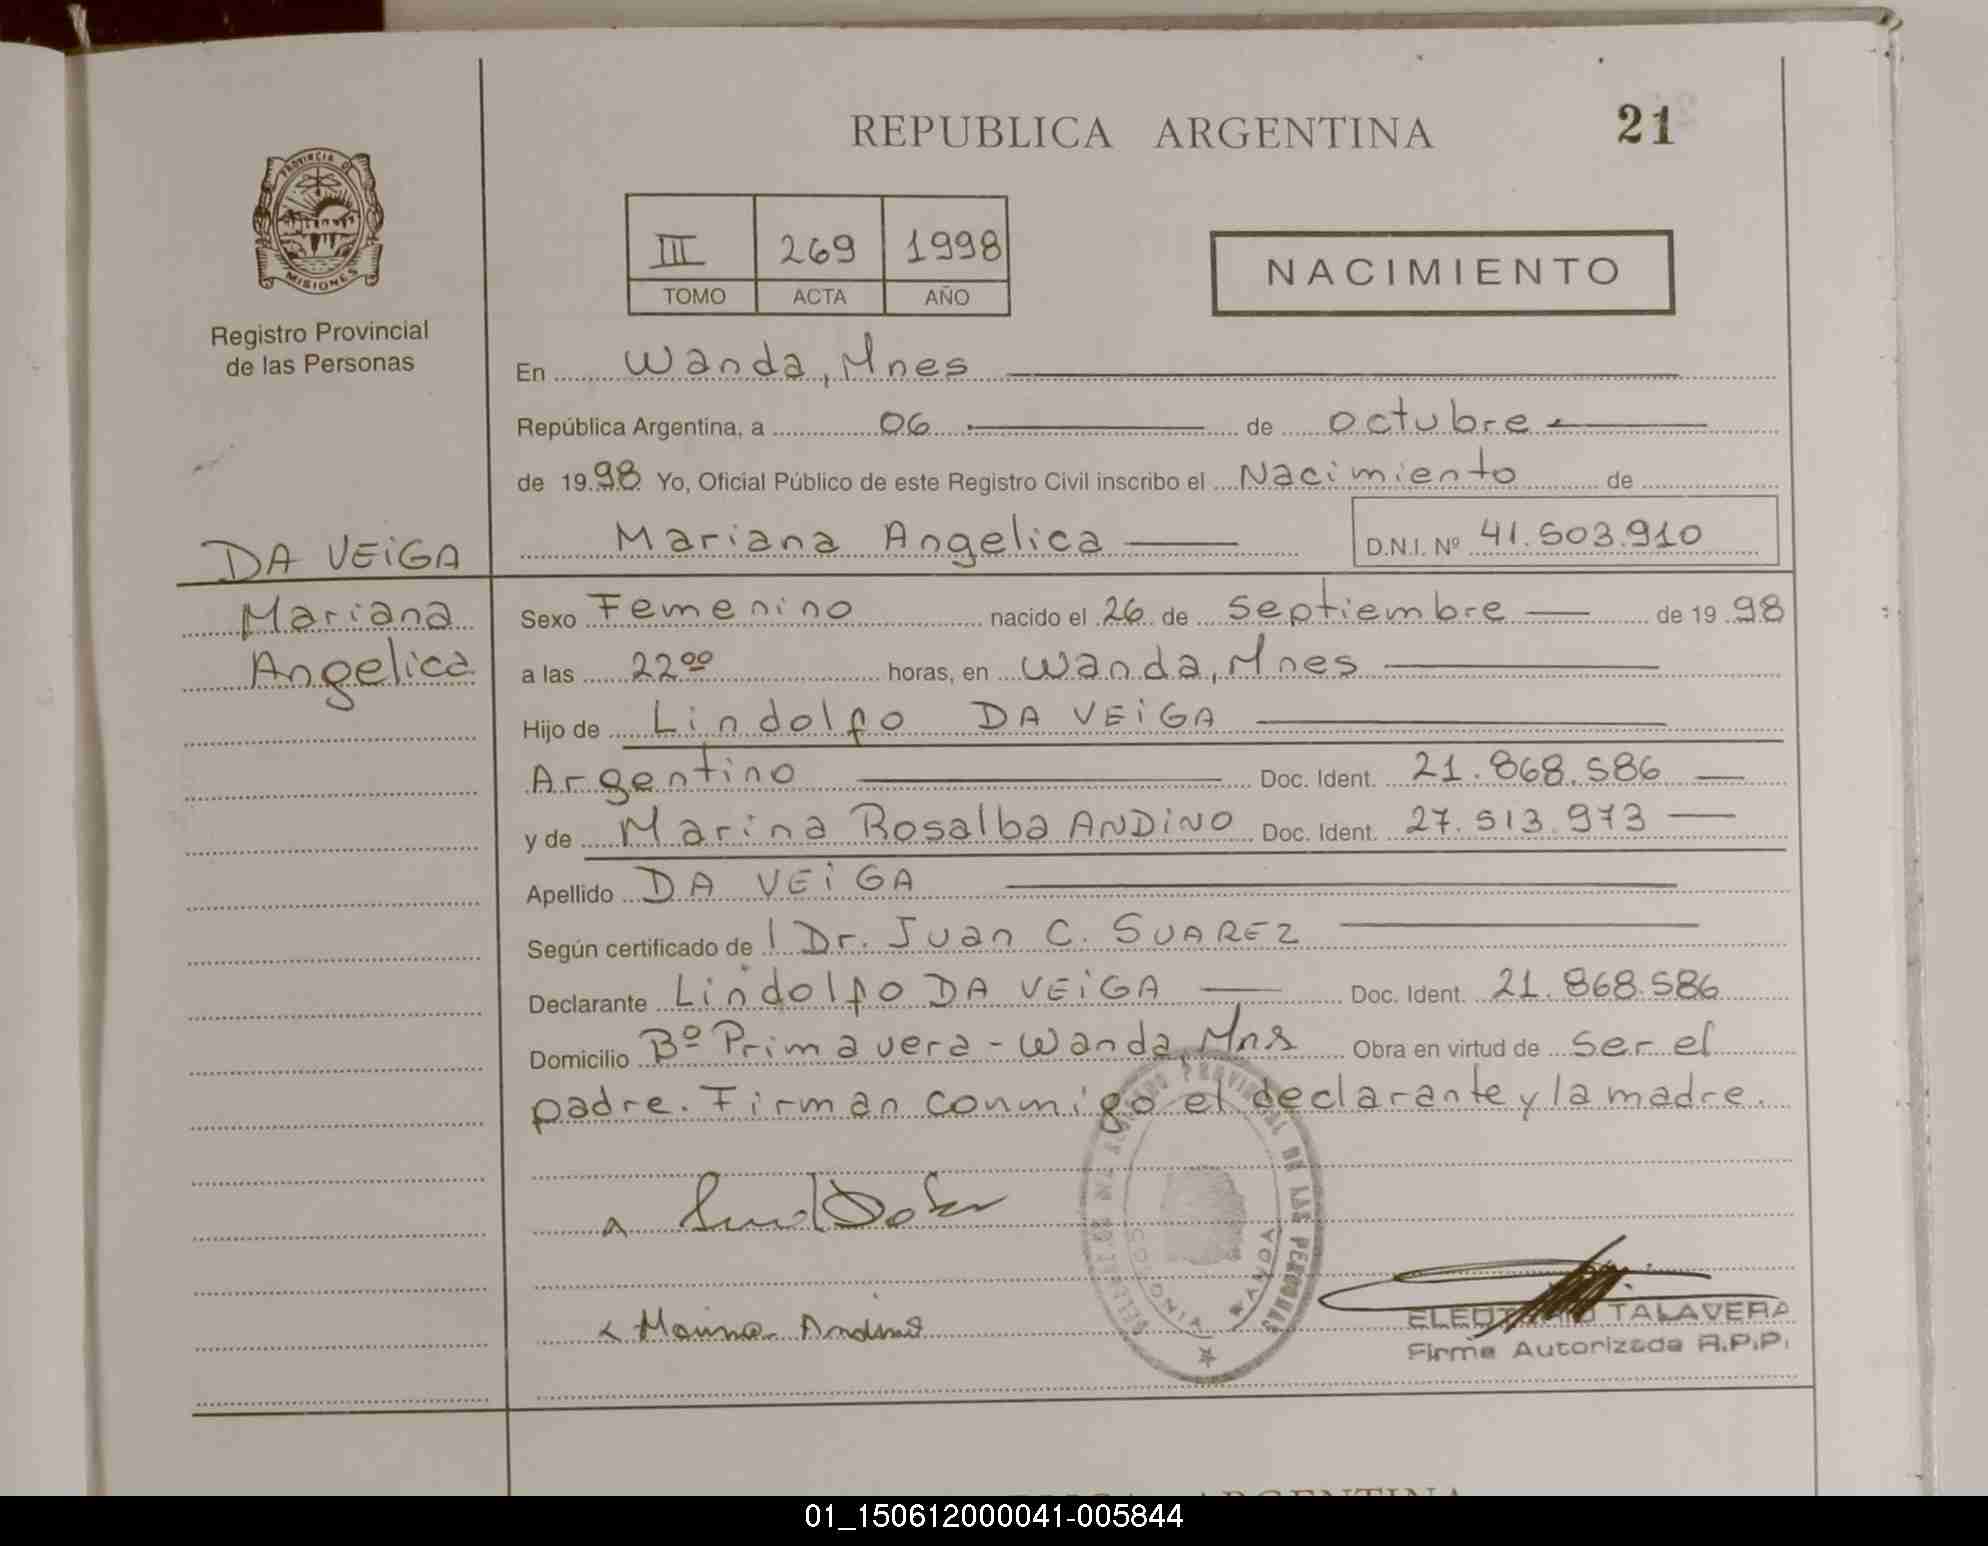 REPUBLICA ARGENTINA
21
PROVINCIA DE
MISIONES
Registro Provincial
de las Personas
III 269 1998
TOMO ACTA AÑO
NACIMIENTO
En Wanda, Mnes
República Argentina, a 06 de octubre
de 1998 Yo, Oficial Público de este Registro Civil inscribo el Nacimiento de
Mariana Angelica D.N.I. Nº 41.503.910
DA VEiGA
Mariana
Angelica
Sexo Femenino nacido el 26 de Septiembre de 1998
a las 22⁰⁰ horas, en Wanda, Mnes
Hijo de Lindolfo DA VEiGA
Argentino Doc. Ident. 21.868.586
y de Marina Rosalba ANDiNO Doc. Ident. 27.513.973
Apellido DA VEiGA
Según certificado de Dr. Juan C. SUAREZ
Declarante Lindolfo DA VEiGA Doc. Ident. 21.868.586
Domicilio Bº Primavera - Wanda, Mns Obra en virtud de ser el
padre. Firman conmigo el declarante y la madre.
PROVINCIAL DE LAS PERSONAS
WANDA
Marina Andino
TALAVERA
Firma Autorizada R.P.P.
ARGENTINA
01_150612000041-005844